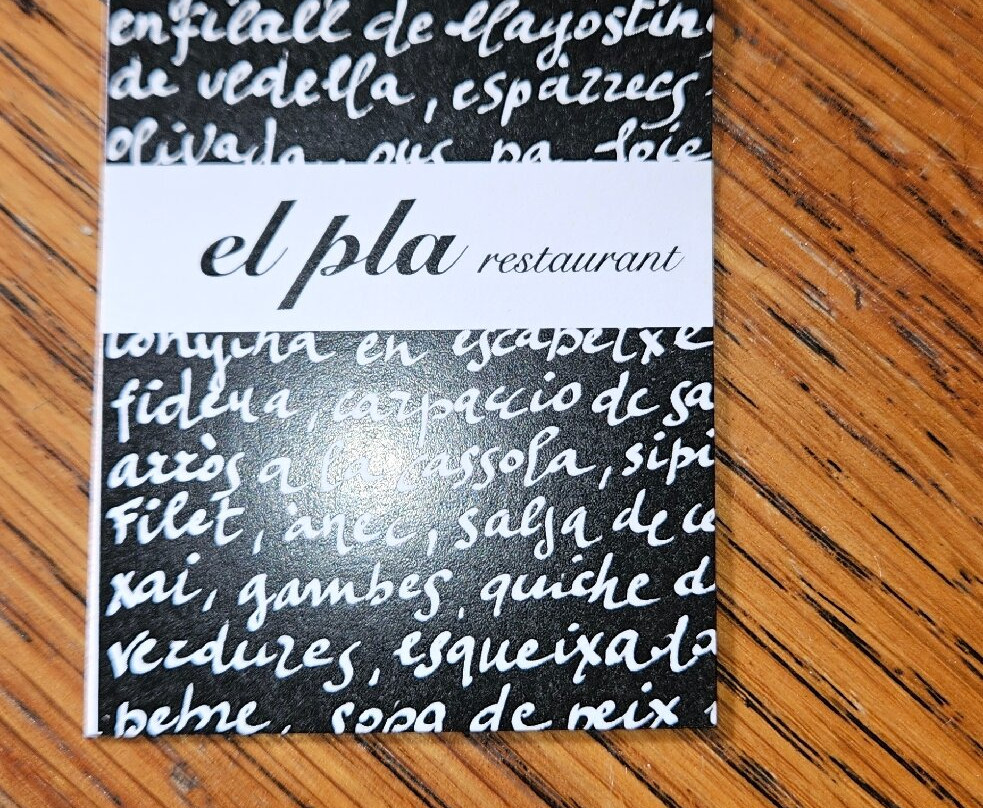 enfilall de llagostin
de vedella, espàrrecs
olivada, ous, pa, foie
el pla restaurant
tonyina en escabetxe
fideua, carpaccio de sa
arròs a la cassola, sipi
Filet, ànec, salsa de ce
xai, gambes, quiche d
verdures, esqueixada
pebre, sopa de peix